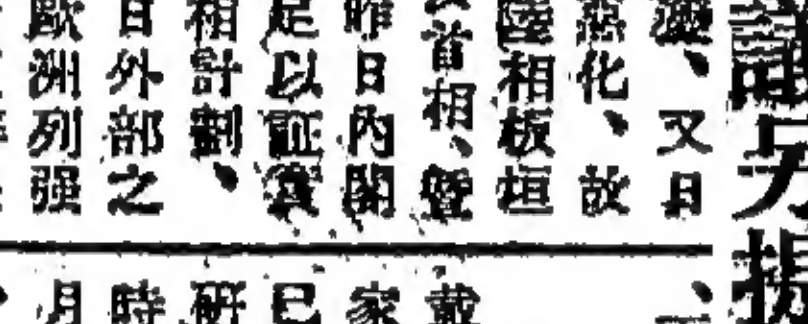 方
、又日
惡化、故
陸相板垣
首相、暨
昨日內閣
足以証實
相計劃、
日外部之
歐洲列强
、
戴
家
已
研
時
月